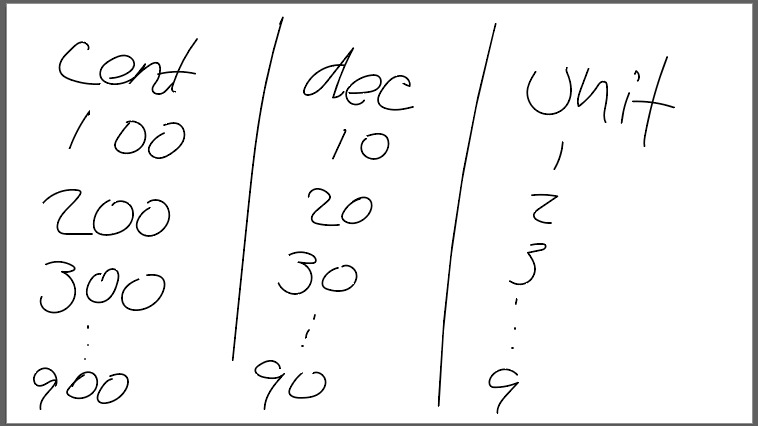 Cent dec unit
100 10 1
200 20 2
300 30 3
⋮ ⋮ ⋮
900 90 9